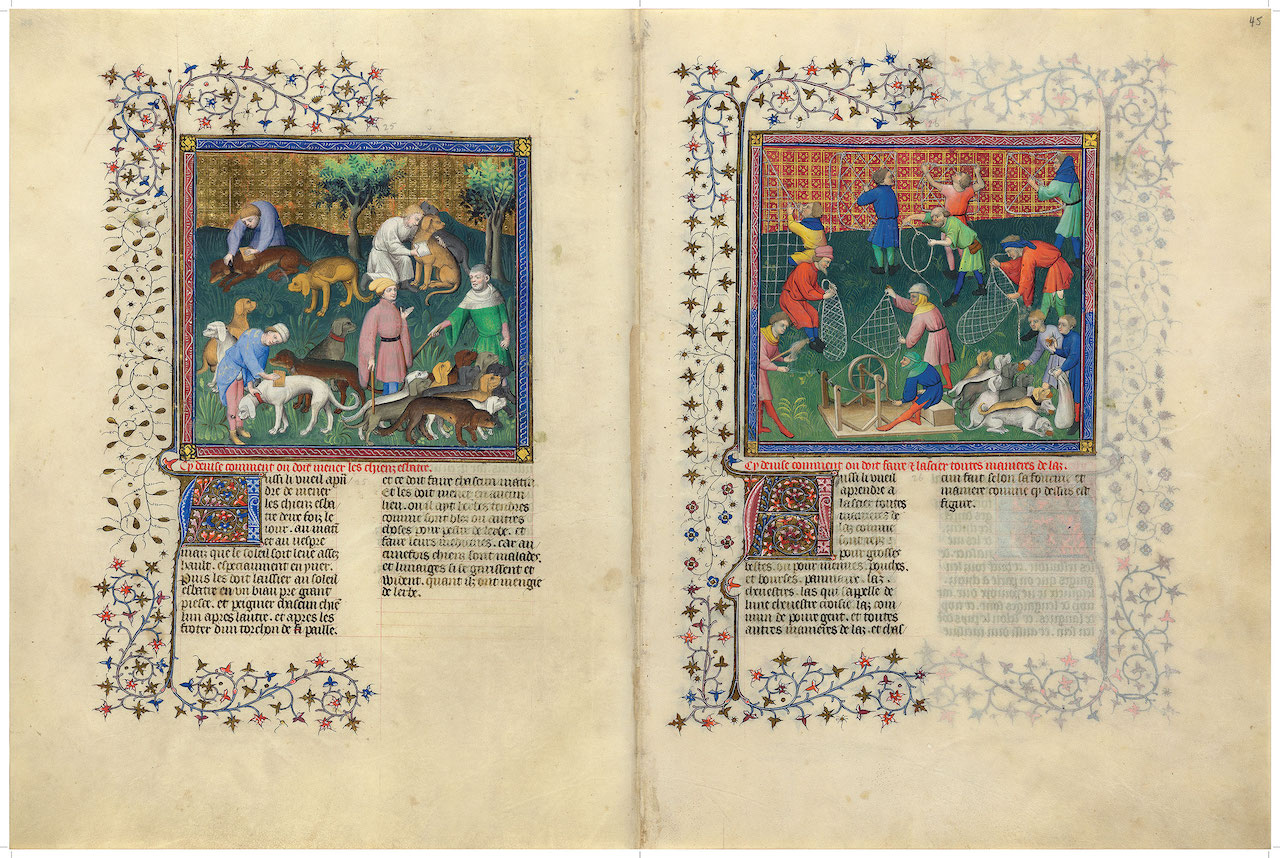 45
Cy devise comment on doit mener les chiens esbatre.
Aussi li vueil apren
dre de mener
les chiens esba
tre deux foiz le
jour. au matin
et au vespre
mais que le soleil soit leve assez
hault. especiaument en yver.
Puis les doit laissier au soleil
esbatre en un biau pre grant
piesce. et peignier chascun chie
l'un apres l'autre. et apres les
froter d'un torchon de paille.
et ce doit faire chascun matin.
Et les doit mener en aucun
lieu. ou il ayt herbes tendres
comme sont blez ou autres
choses pour pestre de lerbe. et
faire leurs medecines. car au
cunefois chiens sont malades.
et lunages si se guarissent et
vuident. quant ilz ont mengie
de lerbe.
Cy devise comment on doit faire et lascier toutes manieres de laz.
Aussi li vueil
aprendre a
lascier toutes
manieres de
laz comme
sont roiz
pour grosses
bestes. ou pour menues. pouches.
et bourses. panniaux. laz.
chevestres. las qui s'apelle de
lune chevestre croisie laz com
mun de pouvre gent. et toutes
autres manieres de laz. et chas
cun fait selon sa facon. et
maniere comme cy dessus est
figure.